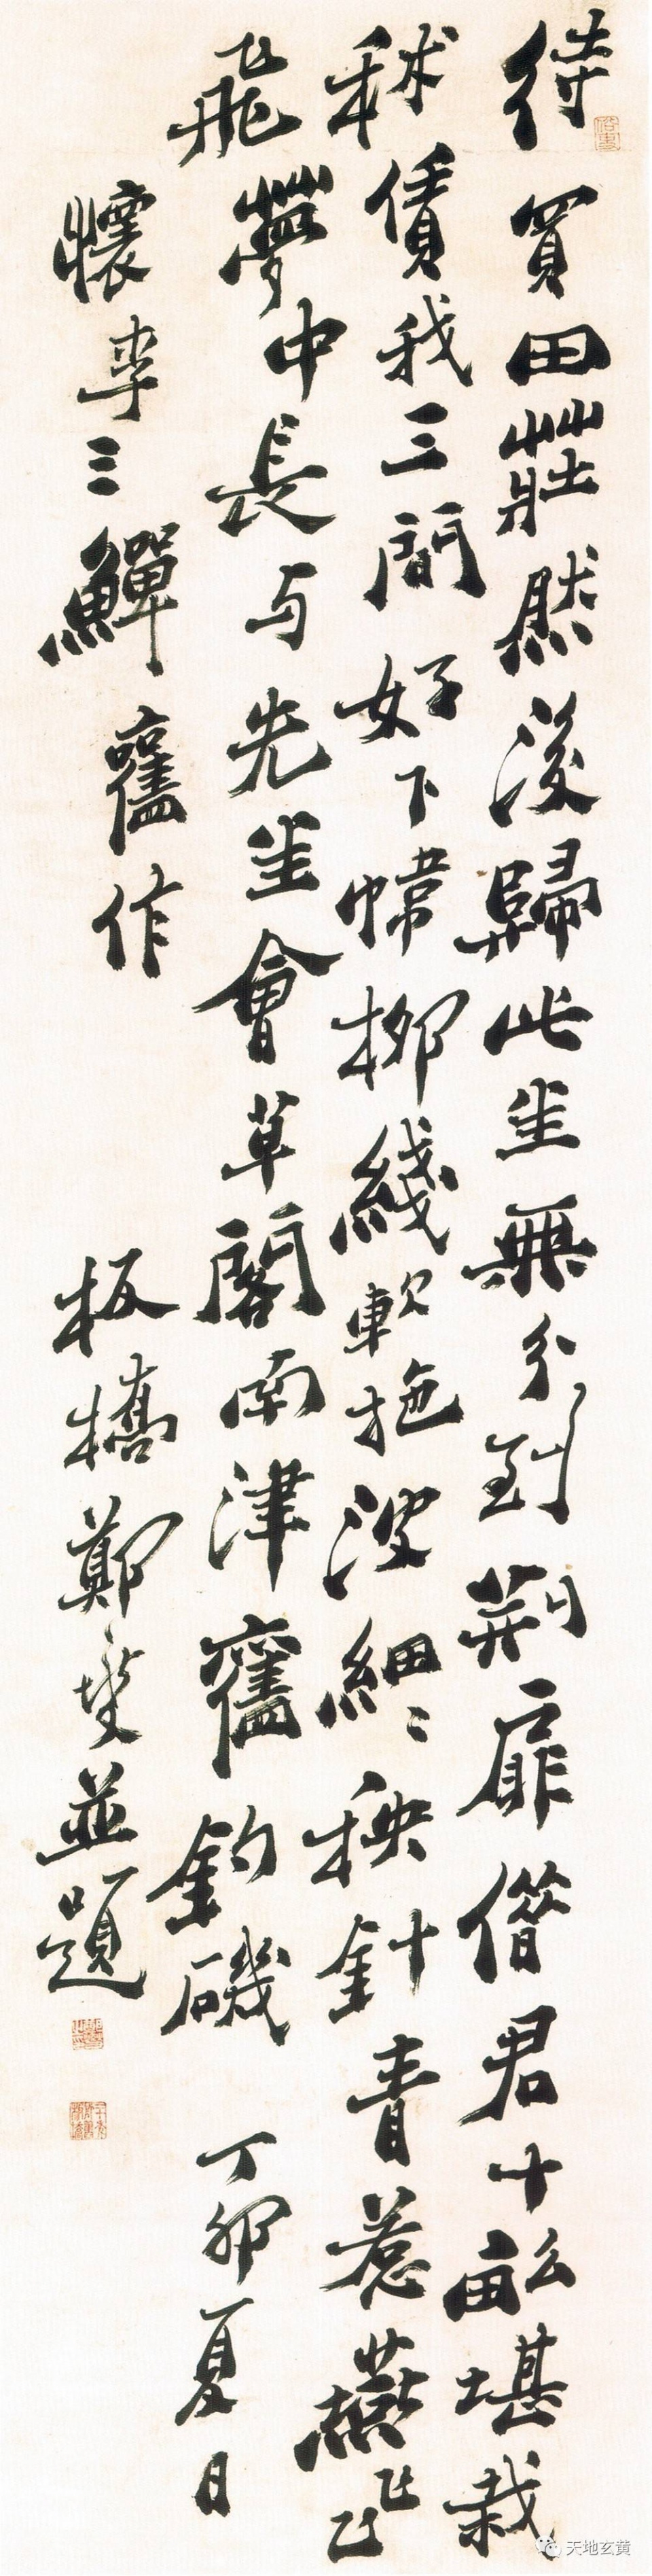 待買田莊然後歸此生無分到荆扉借君十畝堪栽
秫賃我三間好下幃柳綫軟拖波細〻秧針青惹燕飛〻
飛夢中長与先生會草閣南津舊釣磯 丁卯夏日
懷李三鱓舊作 板橋鄭燮並題
天地玄黄